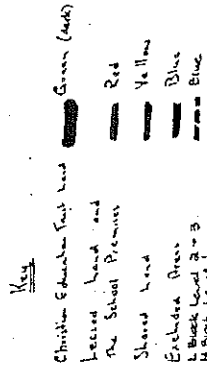 Key
Christian Education Trust Land Green (dark)
Leased Land and
The School Premises Red
Shared Land Yellow
Excluded Areas Blue
L Block Level 2 + 3 Blue
Block Level